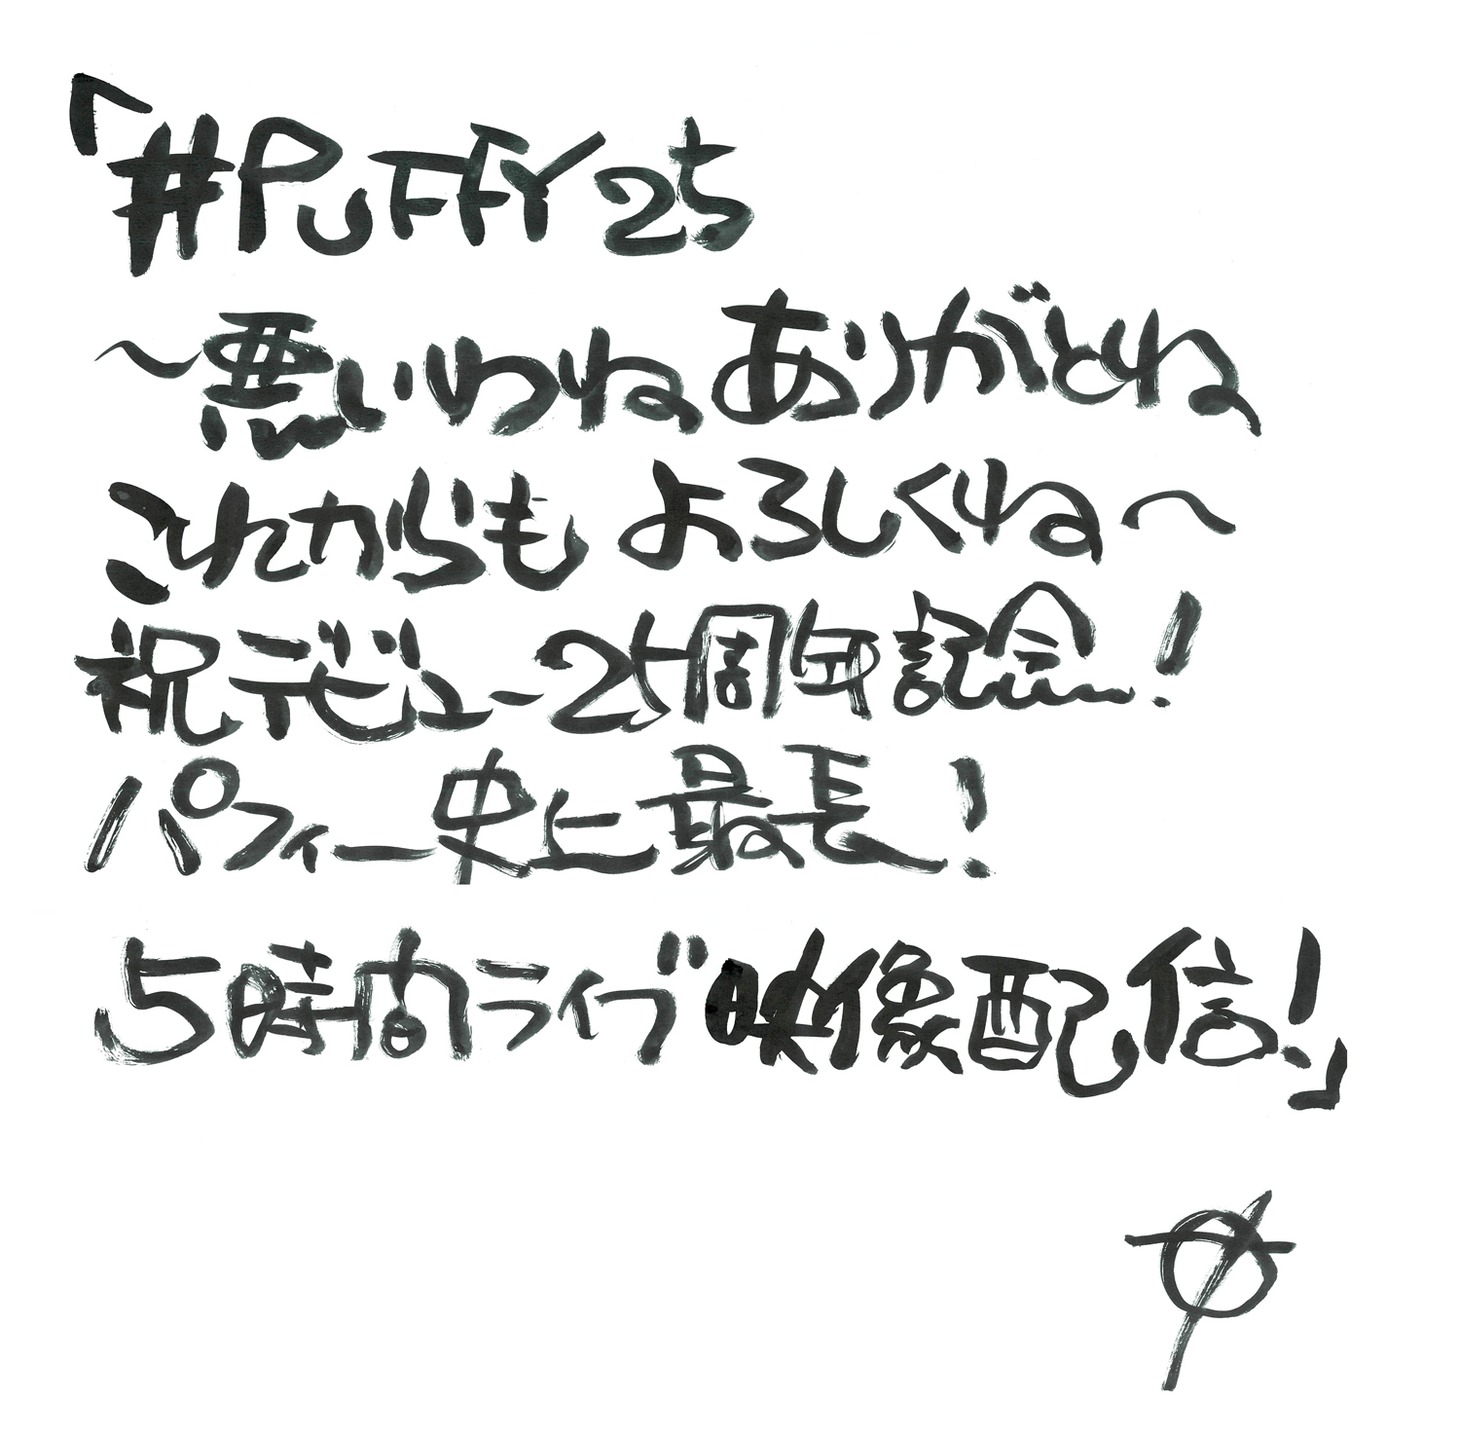 「#PUFFY25
～悪いわね ありがとね
これからも よろしくね～
祝デビュー25周年記念！
パフィー史上最長！
5時間ライブ映像配信！」